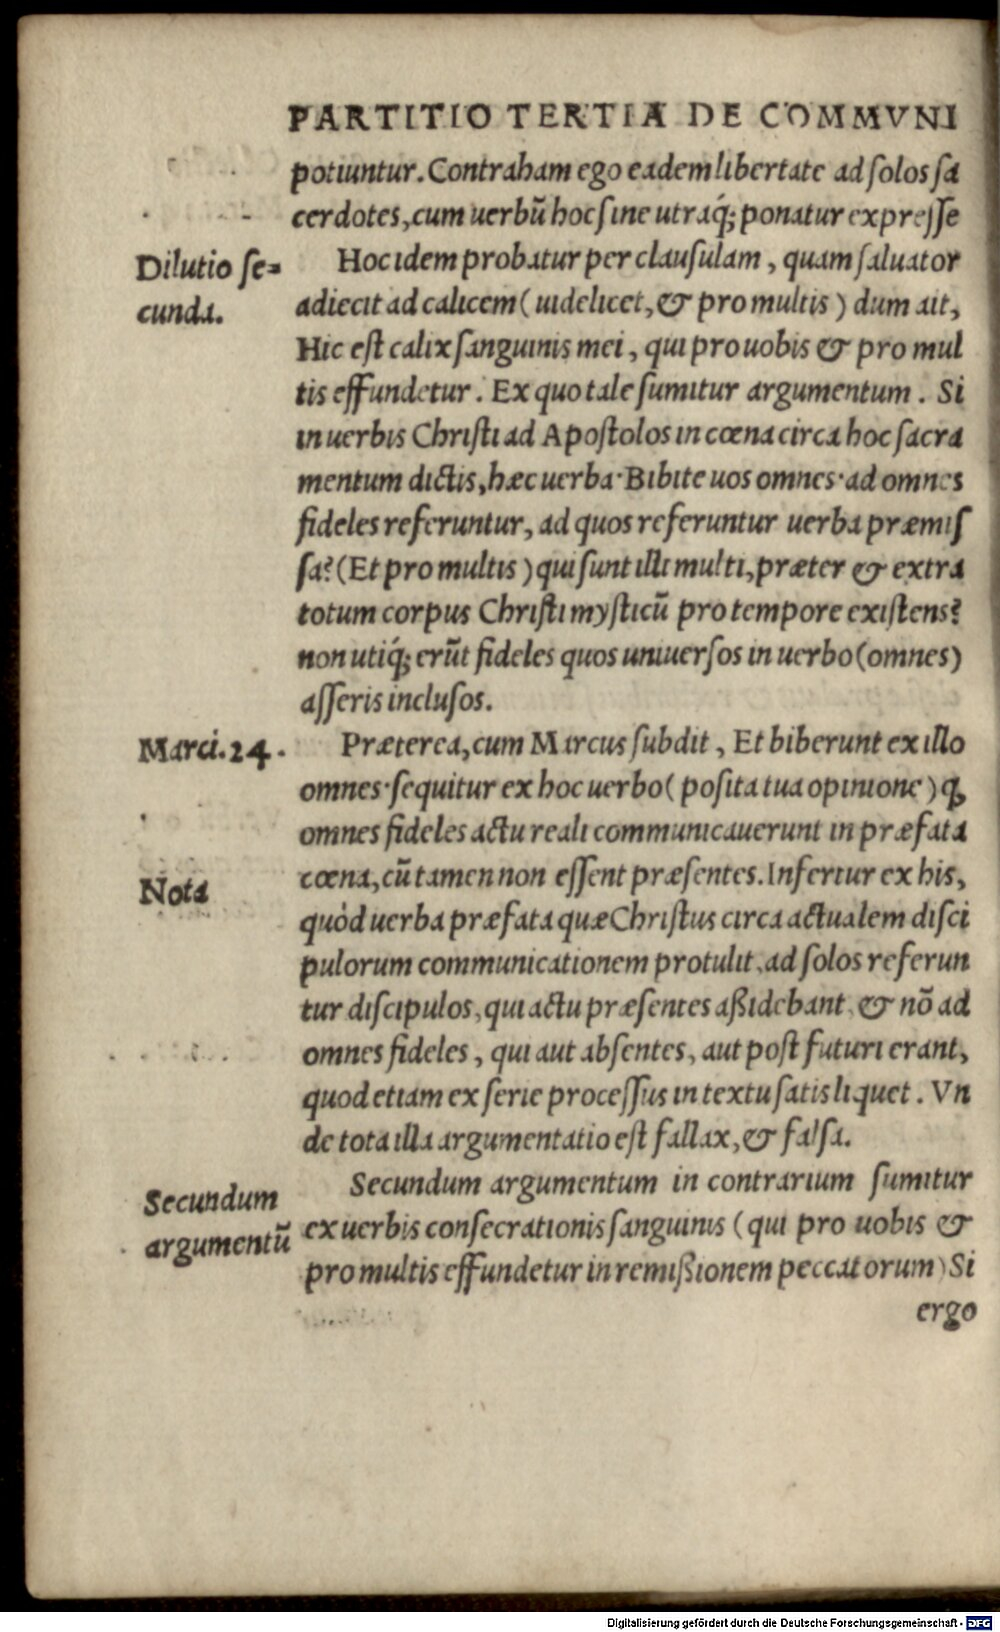 PARTITIO TERTIA DE COMMVNI
potiuntur. Contraham ego eadem libertate ad ſolos ſa
cerdotes, cum uerbũ hoc ſine utraq́; ponatur expreſſe
Dilutio ſe=
cunda.
Hoc idem probatur per clauſulam, quam ſaluator
adiecit ad calicem (uidelicet, & pro multis) dum ait,
Hic eſt calix ſanguinis mei, qui pro uobis & pro mul
tis effundetur. Ex quo tale ſumitur argumentum. Si
in uerbis Chriſti ad Apoſtolos in cœna circa hoc ſacra
mentum dictis, hæc uerba· Bibite uos omnes· ad omnes
fideles referuntur, ad quos referuntur uerba præmiſ
ſa? (Et pro multis) qui ſunt illi multi, præter & extra
totum corpus Chriſti myſticũ pro tempore exiſtens?
non utiq́; erũt fideles quos uniuerſos in uerbo (omnes)
aſſeris incluſos.
Marci. 24.
Præterea, cum Marcus ſubdit, Et biberunt ex illo
omnes· ſequitur ex hoc uerbo (poſita tua opinione) ꝙ
omnes fideles actu reali communicauerunt in præfata
cœna, cũ tamen non eſſent præſentes. Infertur ex his,
Nota
quòd uerba præfata quæ Chriſtus circa actualem diſci
pulorum communicationem protulit, ad ſolos referun
tur diſcipulos, qui actu præſentes aßidebant, & nõ ad
omnes fideles, qui aut abſentes, aut poſt futuri erant,
quod etiam ex ſerie proceſſus in textu ſatis liquet. Vn
de tota illa argumentatio eſt fallax, & falſa.
Secundum
argumentũ
Secundum argumentum in contrarium ſumitur
ex uerbis conſecrationis ſanguinis (qui pro uobis &
pro multis effundetur in remißionem peccatorum) Si
ergo
Digitalisierung gefördert durch die Deutsche Forschungsgemeinschaft - DFG